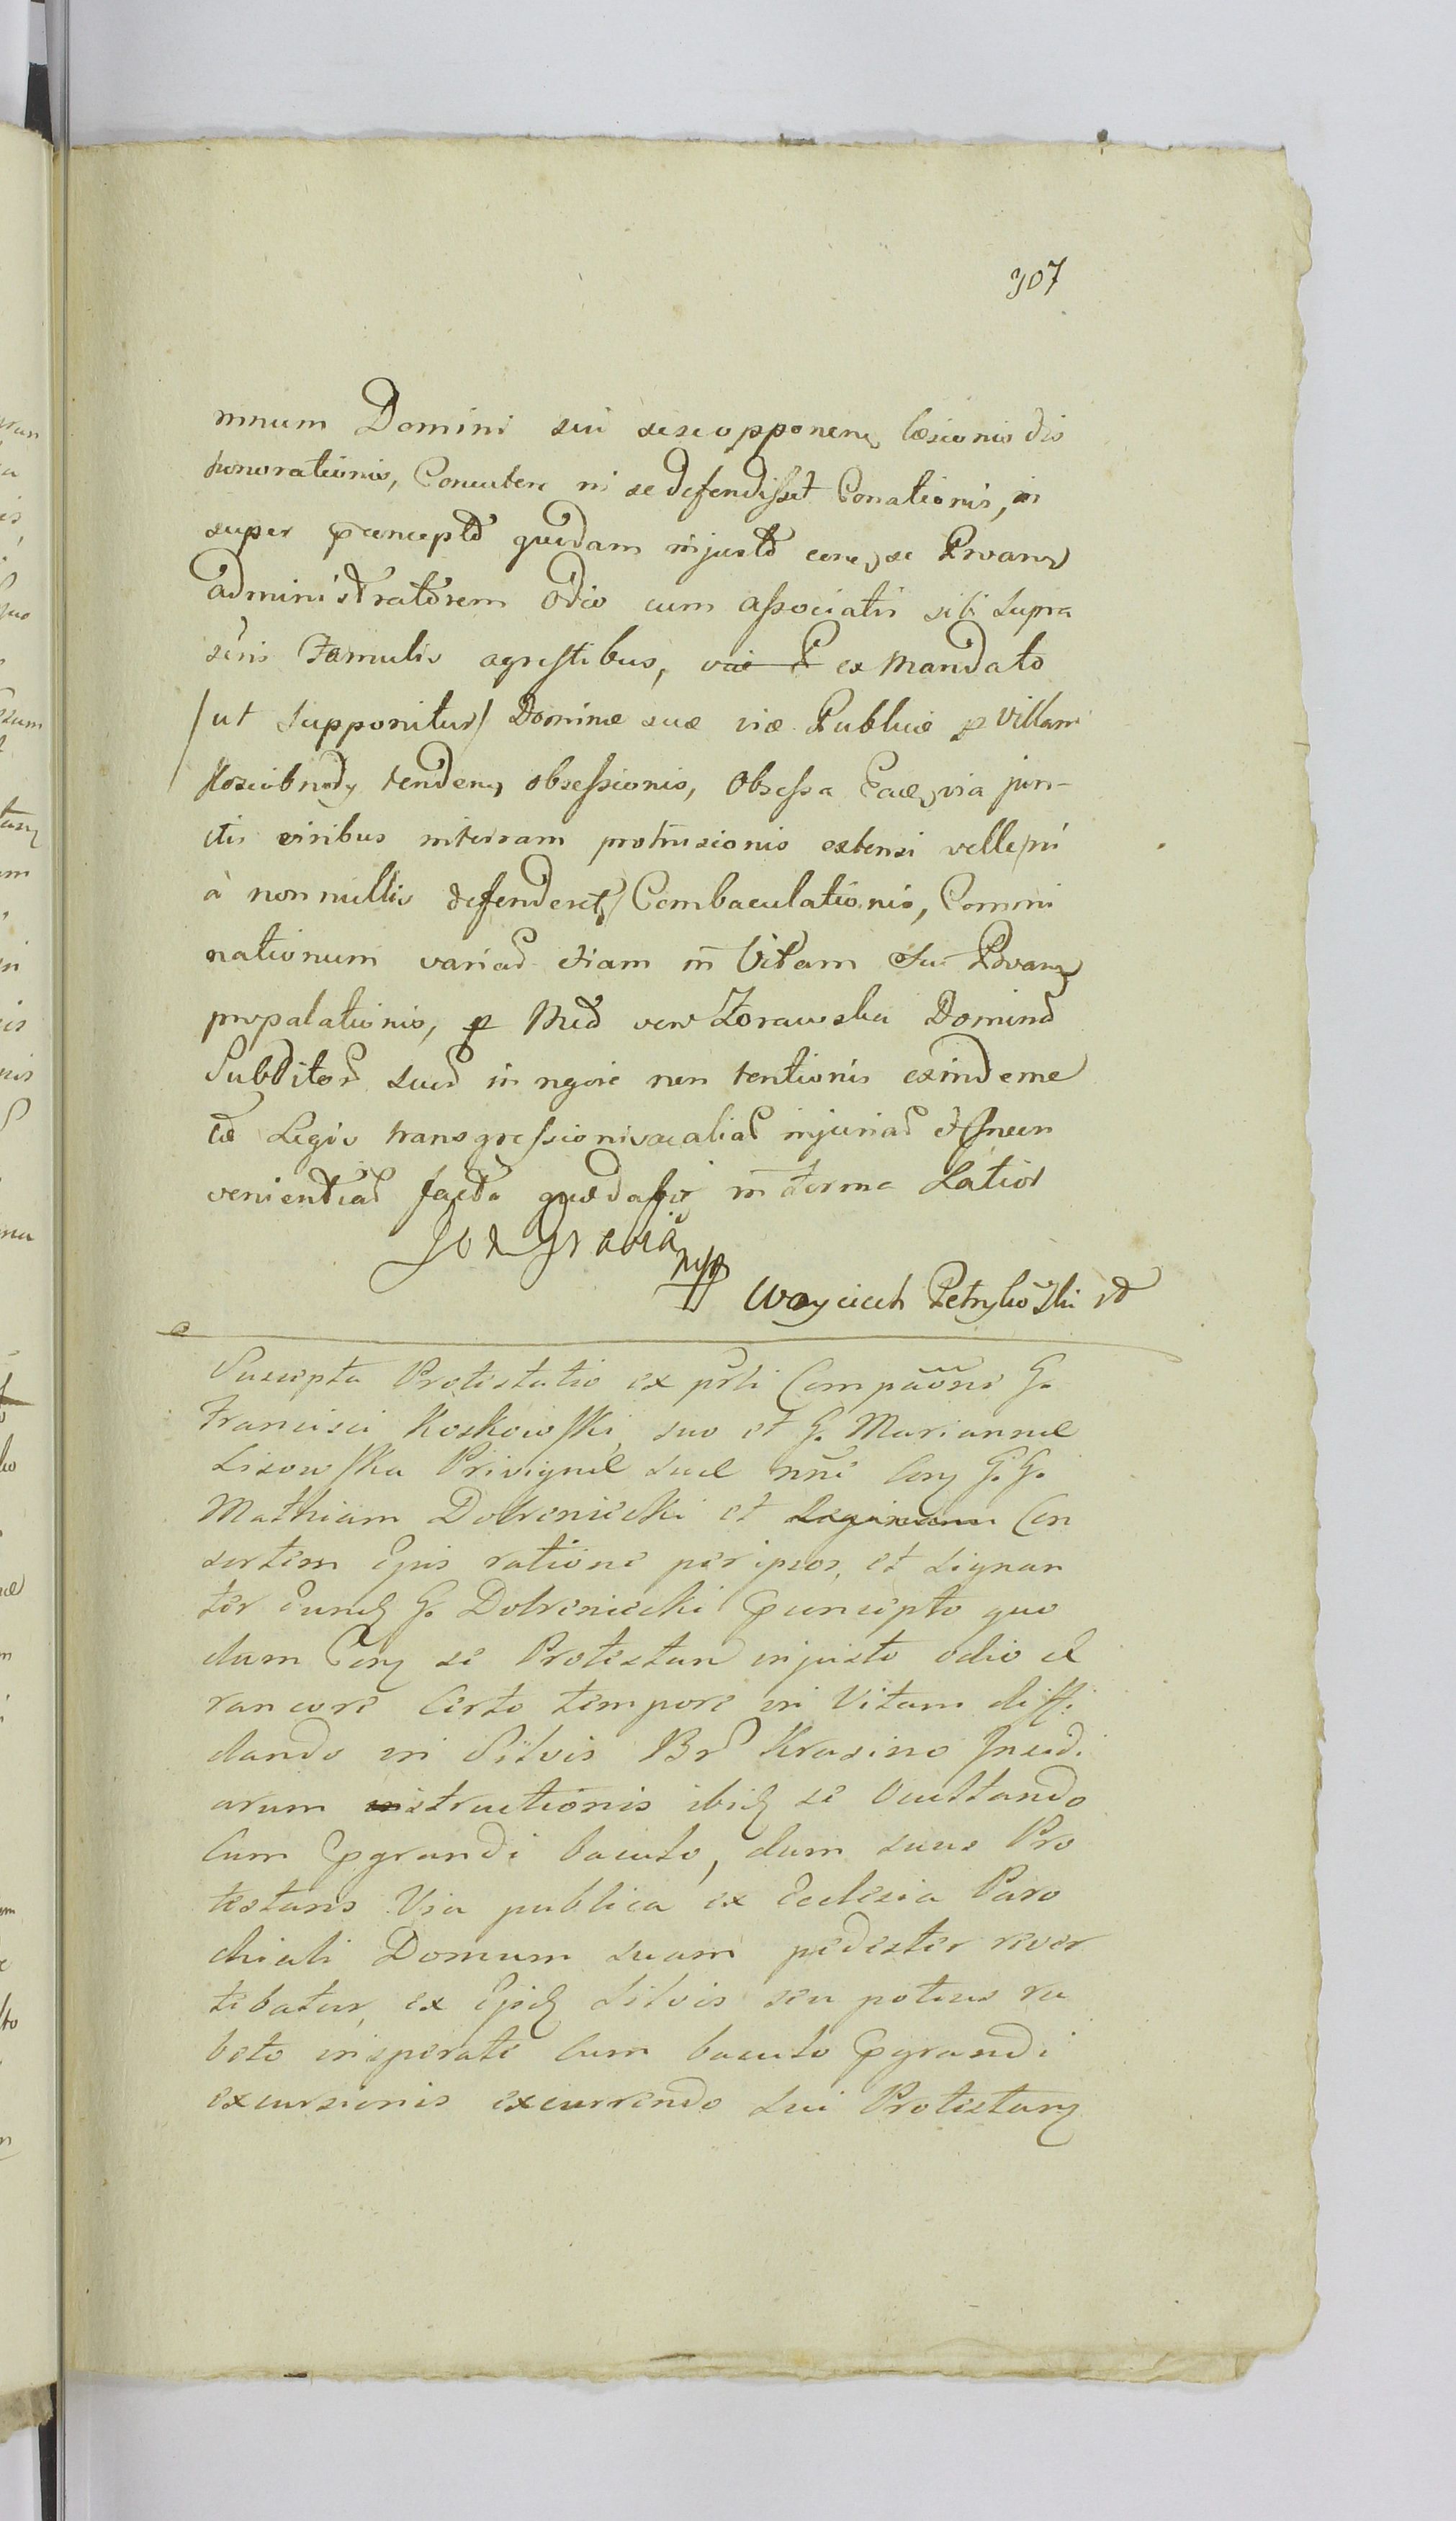 307
mnum Domini sui sese opponen læsionis dis
honorationis, Concutere ni se defendisset Conationis, in
super præconcepto quodam injusto con se Prvan
administratorem Odio cum associatis sibi supra
Famulis agrestibus, ex Mandato
/ut supponitur/ Dominæ suæ viæ Publicæ p Villam
tenden obsessionis, Obsessa via jun-
ctis viribus in terram protrusionis extensi velle /ni
à non nullis defenderet/ Combaculationis, Commi
nationum variar etiam in Vitam Sui Prvan
propalationis, p vero Zorawska Dominam
Subditor suor in rigore non tentionis exinde
Legis transgressionis ac aliar injuriar et Incon
venientiar facta in forma Latior
Woyciech Petrykowski
Suscepta Protestatio ex prti Compaõne G.
Francisci Koskowski, suo et G. Mariannæ
Lisowska Privignæ suæ nñe Con G. G.
Mathiam Dobreniecki et Con
sortem Ejus ratione per ipsos, et signan
ter Eund G. Dobreniecki præconcepto quo
dam Con se Protestan injusto odio et
rancore Certo tempore in Vitam diffi
dando in Silvis Br Krasino Insidi
arum instructionis ibid se Occultando
Cum prgrandi baculo, dum suus Pro
testans Via publica ex Ecclesia Paro
chiali Domum suam pedester rever
tebatur, ex Ejsd Silvis seu potius ru
beto insperate Cum baculo prgrandi
excursionis excurrendo sui Protestan